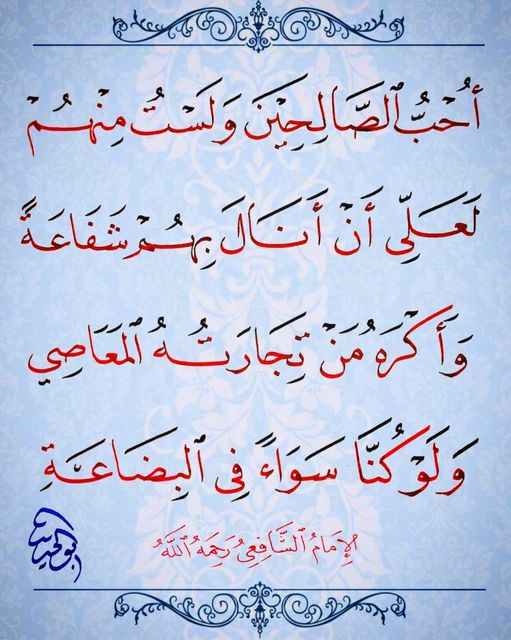 أُحِبُّ ٱلصَّالِحِيْنَ وَلَسْتُ مِنْهُمْ
لَعَلِّى أَنْ أَنَالَ بِهِمْ شَفَاعَةً
وَأَكْرَهُ مَنْ تِجَارَتُهُ ٱلمَعَاصِي
وَلَوْ كُنَّا سَوَاءً فِي ٱلبِضَاعَةِ
ٱلإِمَامُ ٱلشَّافِعِيُّ رَحِمَهُ ٱللَّهُ